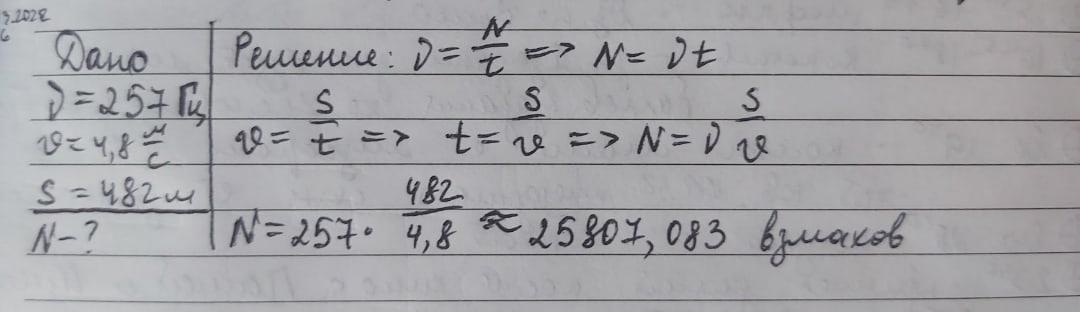 Дано
ν = 257 Гц
v = 4,8 м/с
S = 482 м
N - ?
Решение: ν = N/t => N = νt
v = S/t => t = S/v => N = ν S/v
N = 257 · 482/4,8 ≈ 25807,083 взмаков